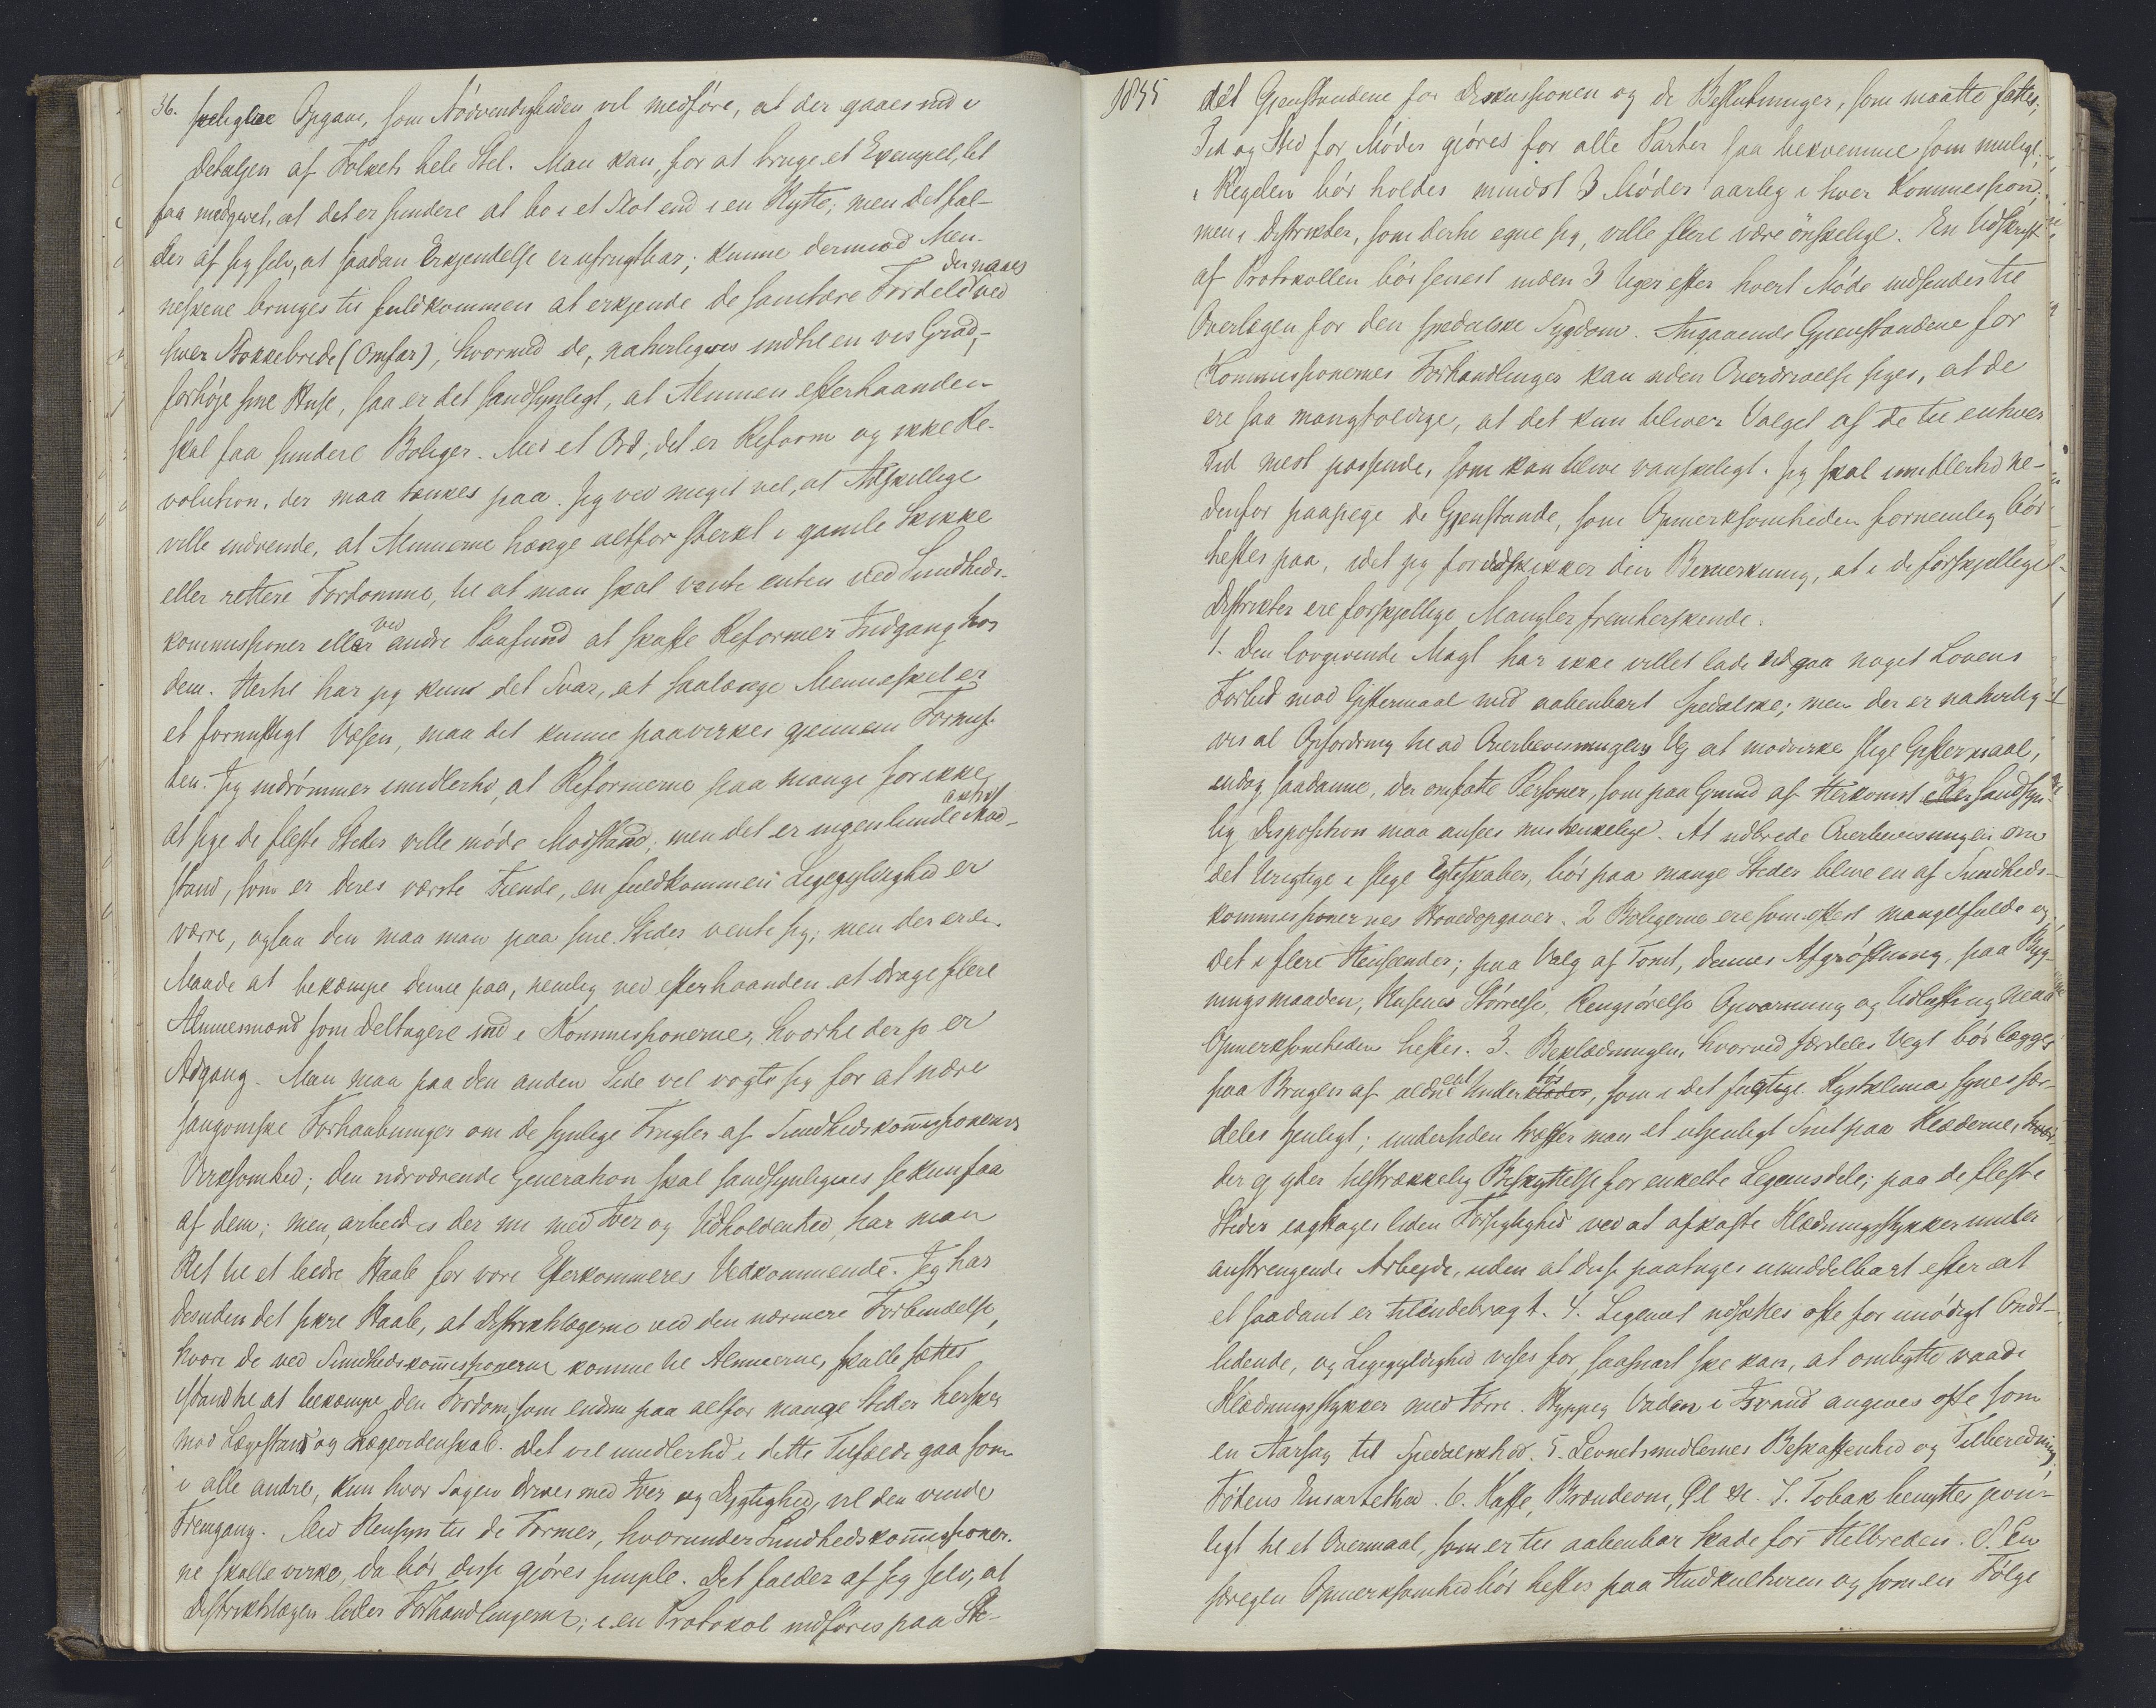 36.
Opgave, som Nødvendigheden vil medføre, at der gaaes ind i
Detaljen af Folkets hele Stel. Man kan, for at bruge et Exempel, let
faa medgivet, at det er sundere at bo i et Slot end i en Hytte; men det fal-
der af sig selv, at saadan Erkjendelse er ufrugtbar; kunne dermod Men-
neskene bringes til fuldkommen at erkjende de sanitære Fordele der naaes ved
hver Stokkebrede (Omfar), hvormed de, naturligvis indtil en vis Grad,
forhøje sine Huse, saa er det sandsynligt, at Almuen efterhaanden
skal faa sundere Boliger. Med et Ord, det er Reform og ikke Re-
volution, der maa tænkes paa. Jeg ved meget vel, at Adskillige
ville indvende, at Almuerne hænge altfor sterkt i gamle Skikke
eller rettere Fordomme, til at man skal vente enten ved Sundheds-
kommissioner eller ved andre Paafund at skaffe Reformer Indgang hos
dem. Hertil har jeg kun det Svar, at saalænge Mennesket er
et fornuftigt Væsen, maa det kunne paavirkes gjennem Fornuf-
ten. Jeg indrømmer imidlertid, at Reformerne paa mange for ikke
at sige de fleste Steder ville møde Modstand; men det er ingenlunde aktiv Mod-
stand, som er deres værste Fiende, en fuldkommen Ligegyldighed er
værre, ogsaa den maa man paa sine Steder vente sig; men der er en
Maade at bekæmpe denne paa, nemlig ved efterhaanden at drage flere
Almuesmænd som Deltagere ind i Kommissionerne, hvortil der jo er
Adgang. Man maa paa den anden Side vel vogte sig for at nære
sangvinske Forhaabninger om de synlige Frugter af Sundhedskommissionernes
Virksomhed; den nærværende Generation skal sandsynligvis se kun faa
af dem; men, arbeides der nu med Iver og Udholdenhed, har man
Ret til et bedre Haab for vore Efterkommeres Vedkommende. Jeg har
desuden det sikre Haab, at Distriktslægerne ved den nærmere Forbindelse,
hvori de ved Sundhedskommissionerne komme til Almuerne, skulle sættes
istand til at bekæmpe den Fordom, som endnu paa altfor mange Steder hersker
mod Lægestand og Lægevidenskab. Det vil imidlertid i dette Tilfælde gaa som
i alle andre, kun hvor Sagen drives med Iver og Dygtighed, vil den vinde
Fremgang. Med Hensyn til de Former, hvorunder Sundhedskommissioner-
ne skulle virke, da bør disse gjøres simple. Det falder af sig selv, at
Distriktslægen leder Forhandlingerne; i en Protokol indføres paa Ste-
1855
det Gjenstandene for Diskussionen og de Beslutninger, som maatte fattes;
Tid og Sted for Møder gjøres for alle Parter saa bekvemme som muligt;
i Regelen bør holdes mindst 3 Møder aarlig i hver Kommission;
men i Distrikter, som dertil egne sig, ville flere være ønskelige. En Udskrift
af Protokollen bør senest inden 3 Uger efter hvert Møde indsendes til
Overlægen for den spedalske Sygdom. Angaaende Gjenstandene for
Kommissionernes Forhandlinger kan uden Overdrivelse siges, at de
ere saa mangfoldige, at det kun bliver Valget af de til enhver
Tid mest passende, som kan blive vanskeligt. Jeg skal imidlertid ne-
denfor paapege de Gjenstande, som Opmerksomheden fornemlig bør
heftes paa, idet jeg forudskikker den Bemerkning, at i de forskjellige
Distrikter ere forskjellige Mangler fremherskende.
1. Den lovgivende Magt har ikke villet lade udgaa noget Lovens
Forbud mod Giftermaal med aabenbart Spedalske; men der er naturlig-
vis al Opfordring til ad Overbevisningens Vej at modvirke slige Giftermaal,
endog saadanne, der omfatte Personer, som paa Grund af Herkomst eller Sandsyn-
lig Disposition maa ansees mistænkelige. At udbrede Overbevisningen om
det Urigtige i slige Egteskaber, bør paa mange Steder blive en af Sundheds-
kommissionernes Hovedopgaver. 2 Boligerne ere som oftest mangelfulde og
det i flere Henseender; paa Valg af Tomt, dennes Afgrøftning, paa Byg-
ningsmaaden, Husenes Størrelse, Rengjørelse Opvarmning og Udluftning maa
Opmerksomheden heftes. 3. Beklædningen, hvorved særdeles Vegt bør lægges
paa Brugen af uldent Undertøi, som i det fugtige Kystklima synes sær-
deles tjenligt; undertiden træffer man et utjenligt Snit paa Klæderne,
der ej yder tilstrækkelig Beskyttelse for enkelte Legemsdele; paa de fleste
Steder iagttages liden Forsigtighed ved at afkaste Klædningsstykker under
anstrengende Arbejde, uden at disse paatages umiddelbart efter at
et saadant er tilendebragt. 4. Legemet udsættes ofte for unødigt Ondt-
lidende, og Ligegyldighed vises for, saasnart ske kan, at ombytte vaade
Klædningsstykker med tørre. Hyppig Vaden i Isvand angives ofte som
en Aarsag til Spedalskhed. 5. Levnetsmidlernes Beskaffenhed og Tilberedning;
Fødens Ensartethed. 6. Kaffe, Brændevin, Øl &c. 7. Tobak benyttes jevn-
ligt til et Overmaal, som er til aabenbar Skade for Helbreden. 8. En
særegen Opmerksomhed bør heftes paa Hudkulturen og som en Følge